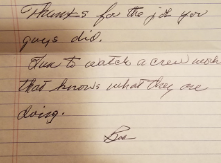 Thanks for the job you
guys did.
Fun to watch a crew work
that knows what they are
doing.
Bob